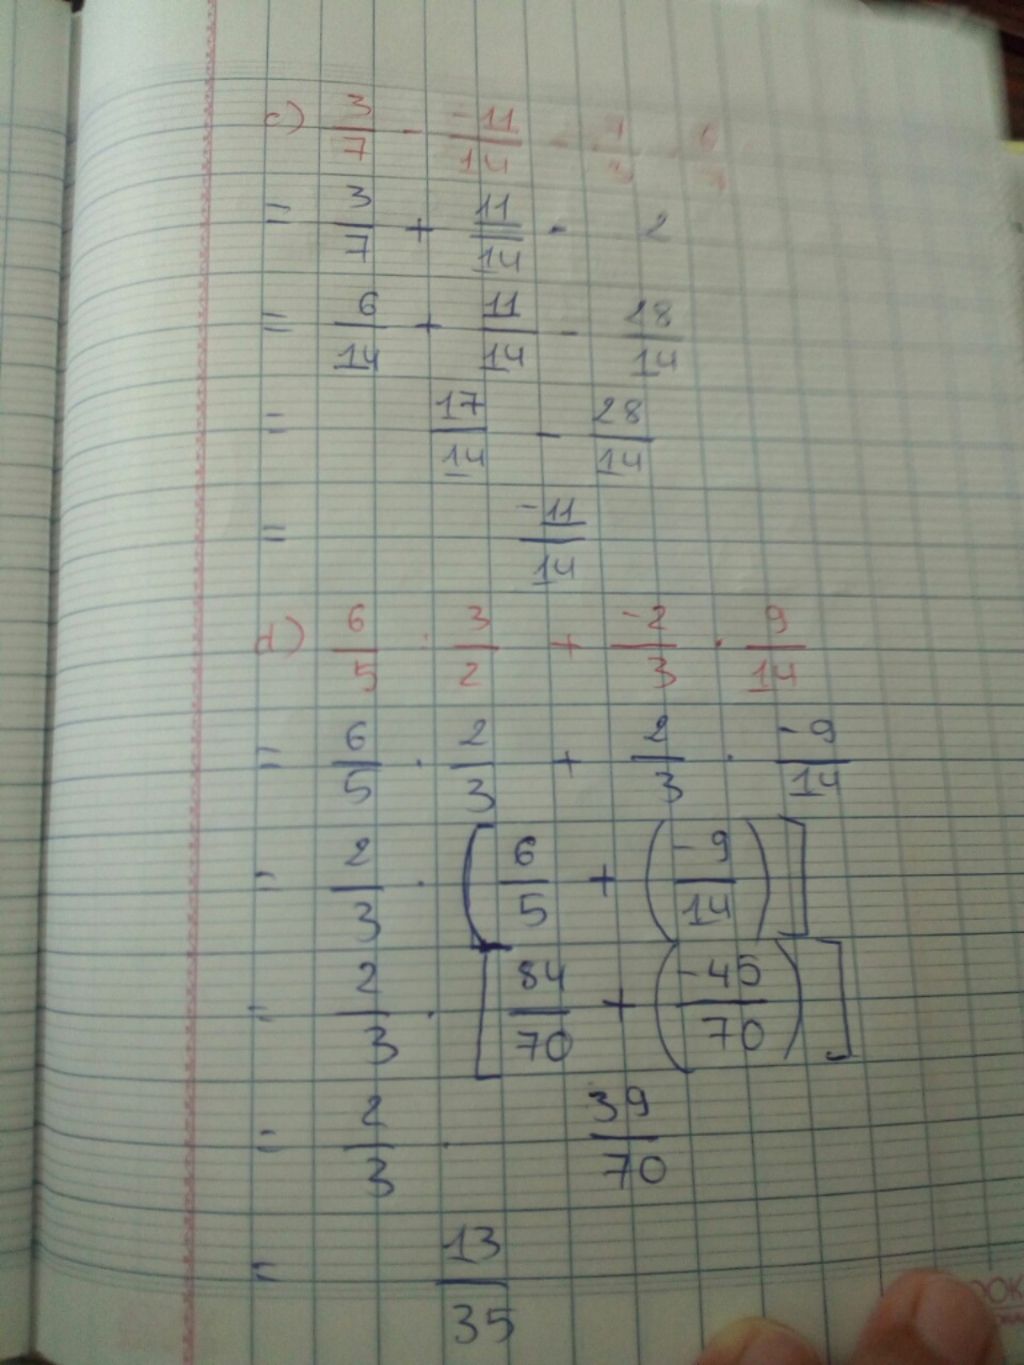 c) 3/7 - -11/14 - 7/3 . 6/7
= 3/7 + 11/14 - 2
= 6/14 + 11/14 - 28/14
= 17/14 - 28/14
= -11/14
d) 6/5 : 3/2 + -2/3 . 9/14
= 6/5 . 2/3 + 2/3 . -9/14
= 2/3 . [6/5 + (-9/14)]
= 2/3 . [84/70 + (-45/70)]
= 2/3 . 39/70
= 13/35